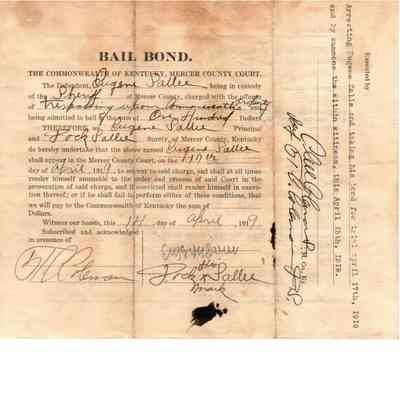 BAIL BOND.
THE COMMONWEALTH OF KENTUCKY, MERCER COUNTY COURT.
The Defendant, Eugene Sallee being in custody
of the of Mercer County, charged with the offense
of Trespassing upon Commonwealth property
being admitted to bail in the sum of One Hundred Dollars
THEREFORE, We Eugene Sallee Principal
and Jock Sallee Surety, of Mercer County, Kentucky
do hereby undertake that the above named Eugene Sallee
shall appear in the Mercer County Court, on the 17th
day of April, 1919, to answer to said charge, and shall at all times
render himself amenable to the order and process of said Court in the
prosecution of said charge, and if convicted shall render himself in execu-
tion thereof; or if he shall fail to perform either of these conditions, that
we will pay to the Commonwealth of Kentucky the sum of
Dollars.
Witness our hands, this 14 day of April, 1919
Subscribed and acknowledged
in presence of
Coleman
Eugene Sallee
his
Jock x Sallee
Mark
Executed by
Arresting Eugene Salle and taking his bond for trial april 17th, 1919
and by summons the witness, this April 15th, 1919.